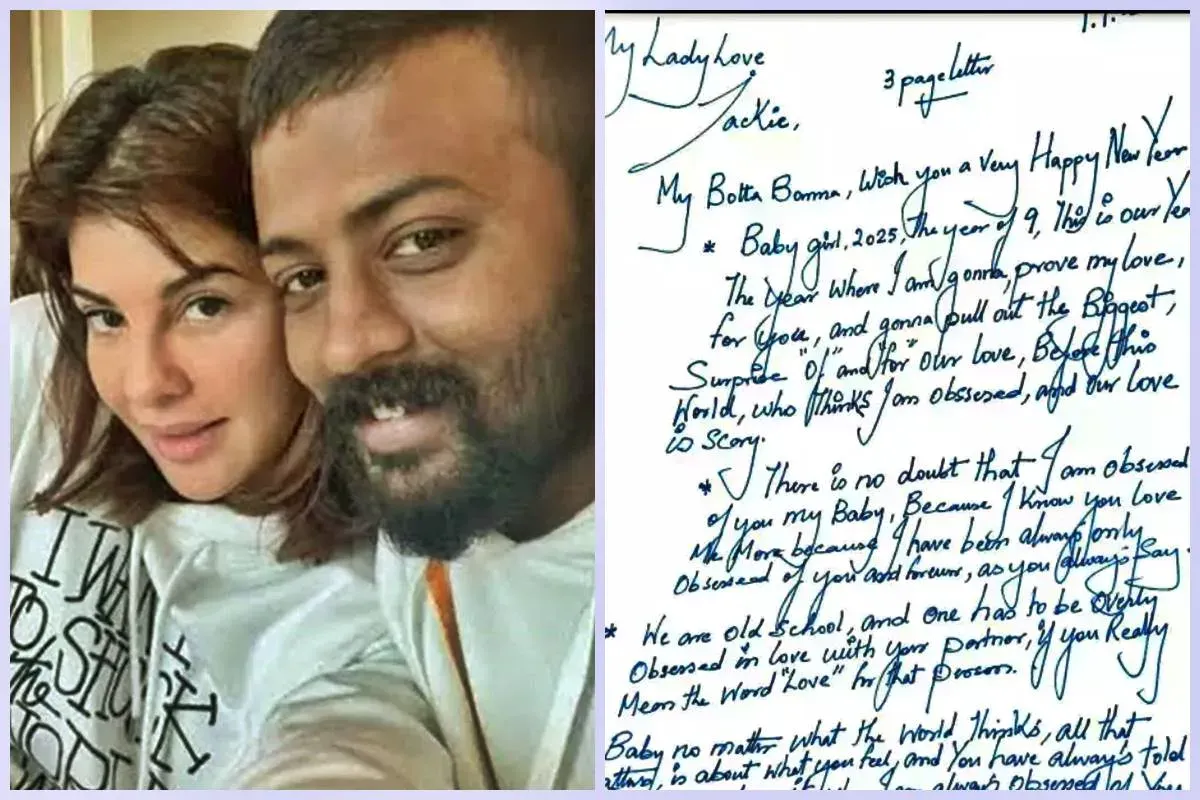 I WANT
TO SHO
My Lady Love
Jackie,
3 page letter
My Botta Bomma, Wish you a Very Happy New Year
* Baby girl, 2025, The year of 9, This is our Yea
The Year Where I am gonna prove my love,
for you, and gonna pull out the Biggest,
Surprise "Of" and "for" our love, Before this
World, who thinks I am obssessed, and our love
is Scary.
* There is no doubt that I am obsessed
of you my Baby, Because I know you love
Me More because I have been always only
Obsessed of you and forever, as you always Say.
* We are old School, and one has to be Overly
Obsessed in love with your partner, if you Really
Mean the Word "Love" for that person.
Baby no matter what the World thinks, all that
is about what you feel, and You have always told
always obsessed of You